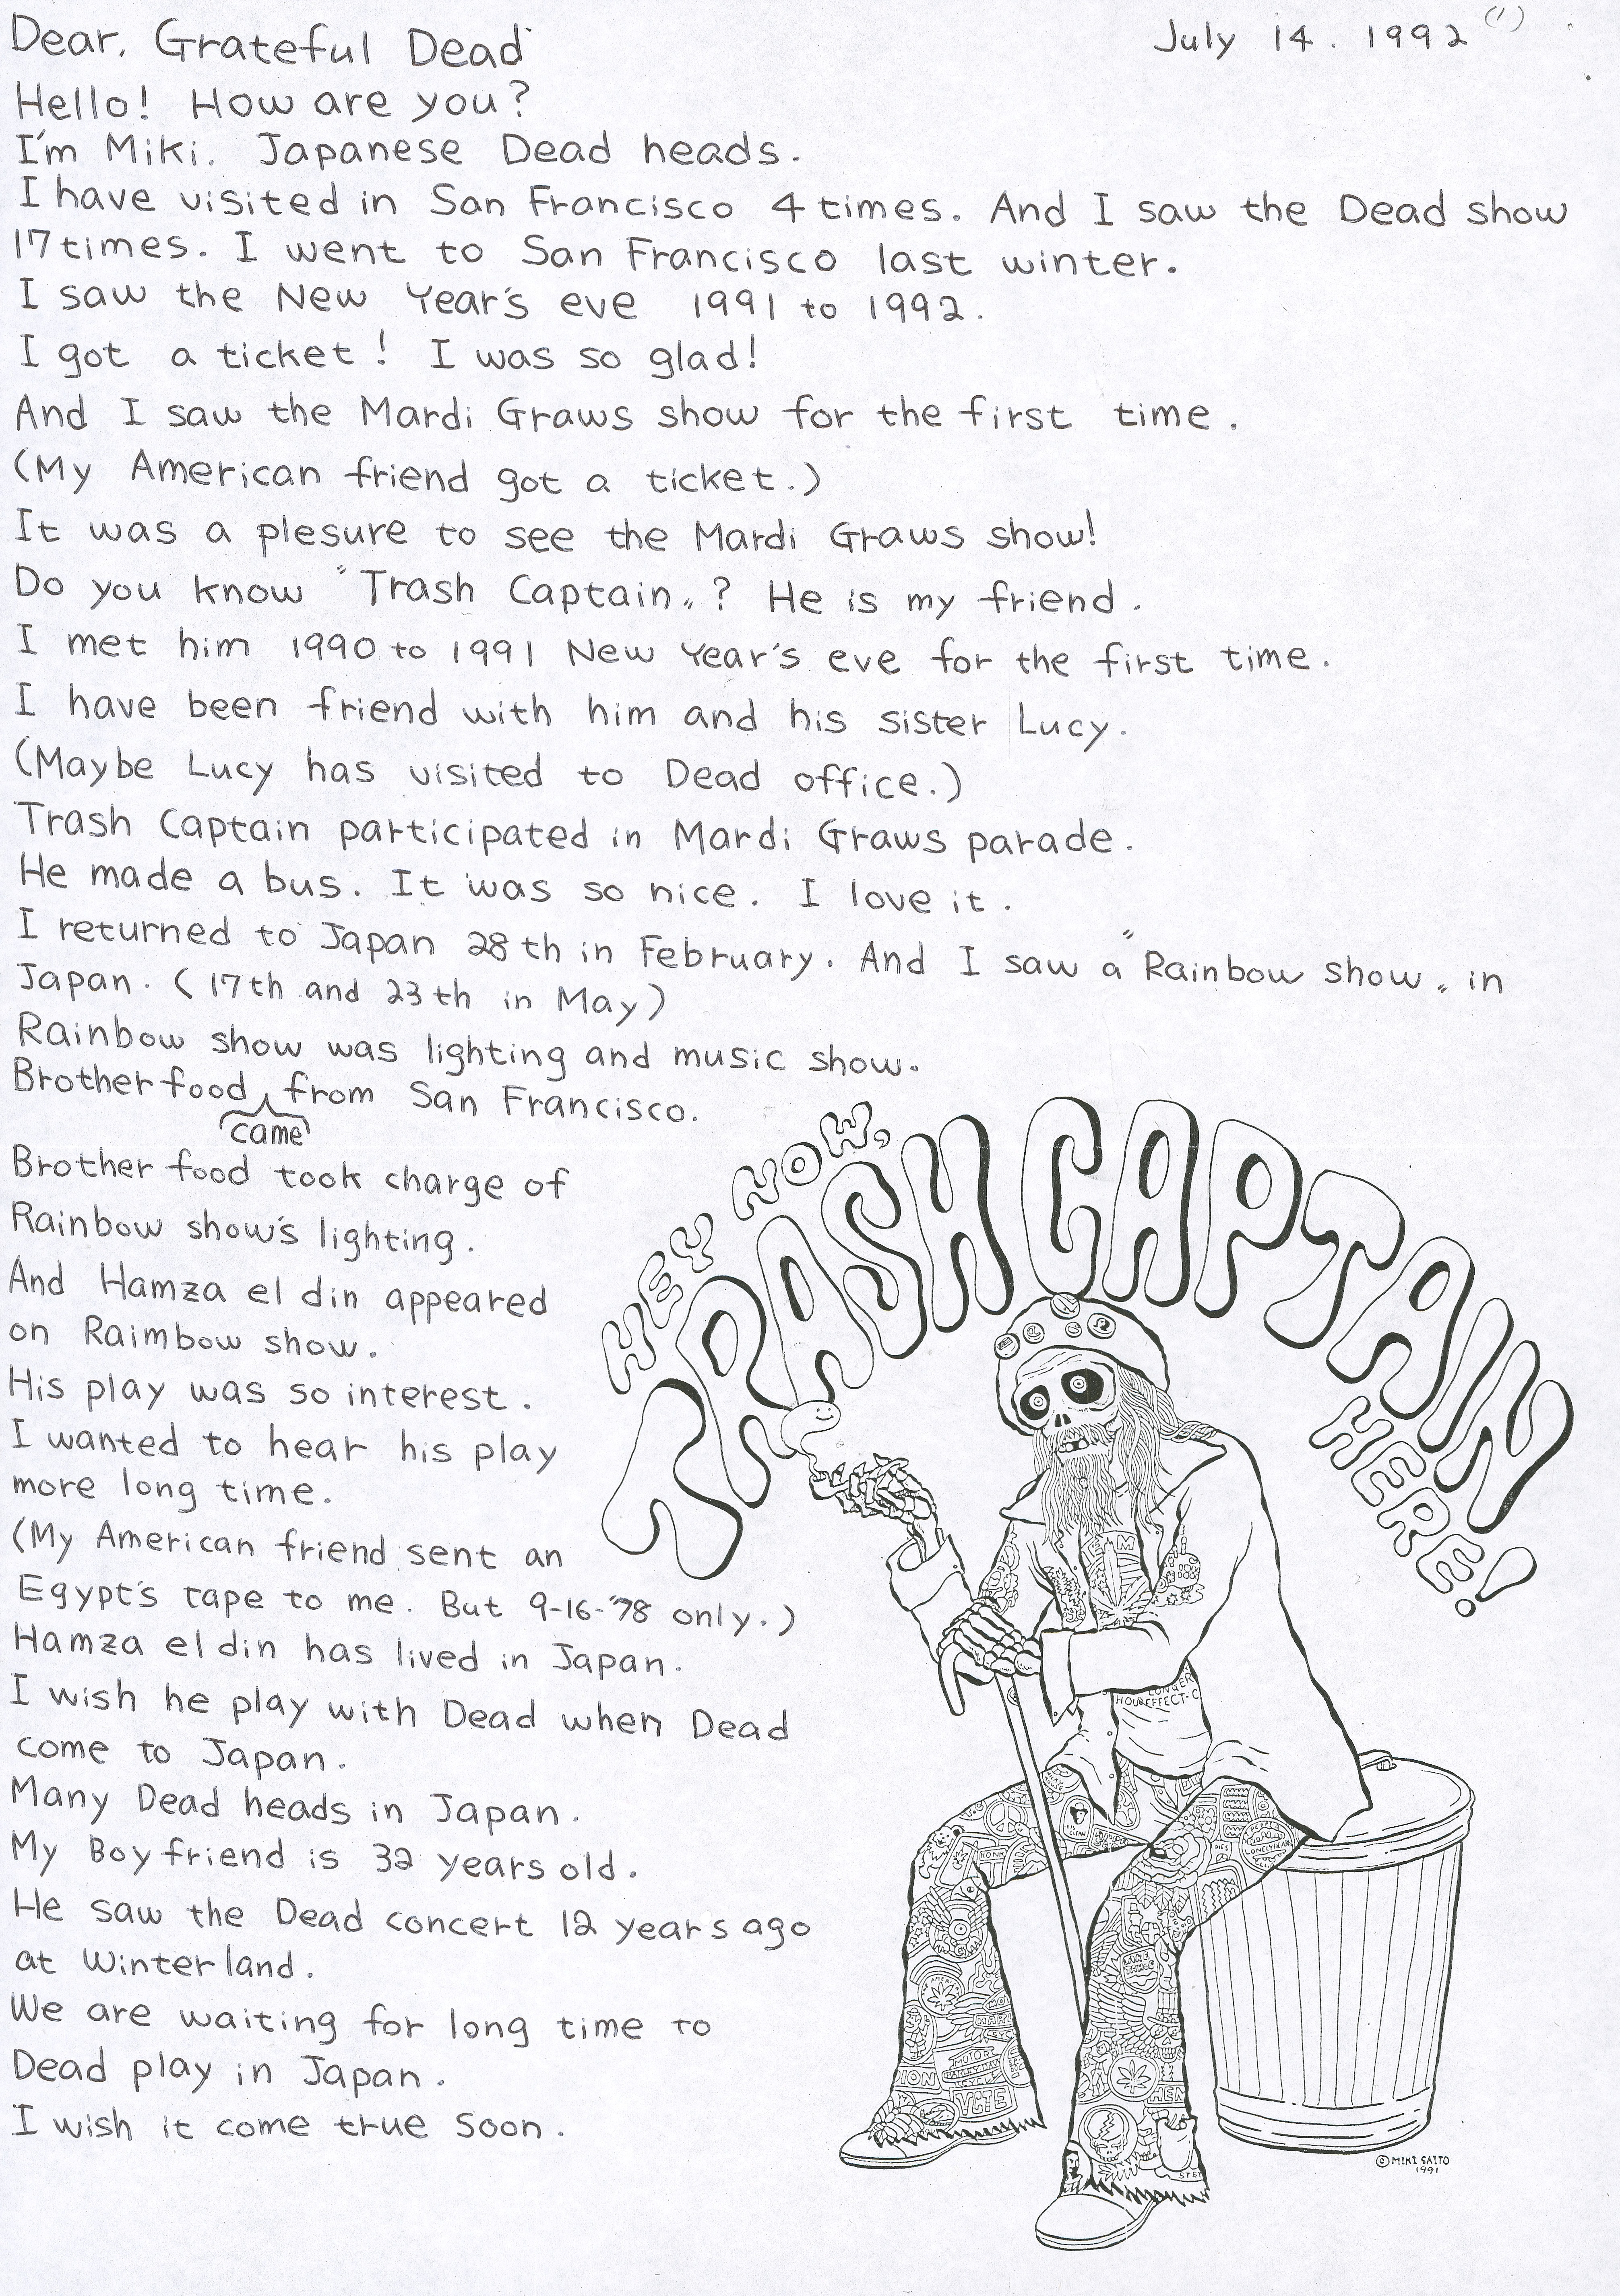 Dear. Grateful Dead
July 14. 1992 (1)
Hello! How are you?
I'm Miki. Japanese Dead heads.
I have visited in San Francisco 4 times. And I saw the Dead show
17 times. I went to San Francisco last winter.
I saw the New Year's eve 1991 to 1992.
I got a ticket! I was so glad!
And I saw the Mardi Graws show for the first time.
(My American friend got a ticket.)
It was a plesure to see the Mardi Graws show!
Do you know "Trash Captain"? He is my friend.
I met him 1990 to 1991 New Year's eve for the first time.
I have been friend with him and his sister Lucy.
(Maybe Lucy has visited to Dead office.)
Trash Captain participated in Mardi Graws parade.
He made a bus. It was so nice. I love it.
I returned to Japan 28th in February. And I saw a "Rainbow show" in
Japan. (17th and 23th in May)
Rainbow show was lighting and music show.
Brother food came from San Francisco.
Brother food took charge of
Rainbow show's lighting.
And Hamza el din appeared
on Raimbow show.
His play was so interest.
I wanted to hear his play
more long time.
(My American friend sent an
Egypt's tape to me. But 9-16-'78 only.)
Hamza el din has lived in Japan.
I wish he play with Dead when Dead
come to Japan.
Many Dead heads in Japan.
My Boy friend is 32 years old.
He saw the Dead concert 12 years ago
at Winterland.
We are waiting for long time to
Dead play in Japan.
I wish it come true soon.
HEY NOW,
TRASH CAPTAIN
HERE!
LONGER
HOUR EFFECT-C
VOTE
© MIKI SAITO
1991